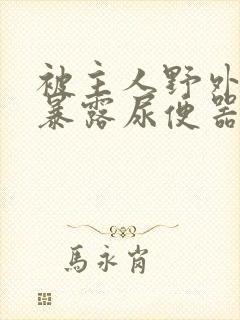 被主人野外
暴露尿便器
馬永肖